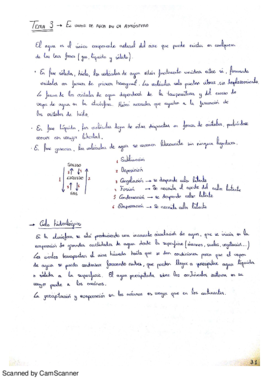 TEMA 3 → EL CICLO DE AGUA EN LA ATMÓSFERA
El agua es el único componente natural del aire que puede existir en cualquiera
de las tres fases (gas, líquido y sólido).
· En fase sólida, hielo, las moléculas de agua están fuertemente unidas entre sí, formando
moléculas en forma de prisma hexagonal. Las moléculas solo pueden vibrar sin desplazamiento
La forma de los cristales de agua dependerá de la temperatura y del exceso de
vapor de agua en la atmósfera. Existen núcleos que ayudan a la formación de
los cristales de hielo.
· En fase líquida, las moléculas dejan de estar dispuestas en forma de cristales, pudiéndose
mover con mayor libertad.
· En fase gaseosa, las moléculas de agua se mueven libremente sin ninguna ligadura.
GASEOSO
LÍQUIDO
SÓLIDO
1 Sublimación
2 Deposición
3 Congelación → Se desprende calor latente
4 Fusión → Se necesita el aporte del calor latente
5 Condensación → Se desprende calor latente
6 Evaporación → Se necesita calor latente
→ Ciclo hidrológico
En la atmósfera se está produciendo una constante circulación de agua, que se inicia en la
evaporación de grandes cantidades de agua desde la superficie (océanos, suelos, vegetación...)
Los vientos transportan el aire húmedo hasta que se den condiciones para que el vapor
de agua se pueda condensar formando nubes, que pueden llegar a precipitar agua líquida
o sólida a la superficie. El agua precipitada sobre los continentes volverá en su
mayor parte a los océanos.
La precipitación y evaporación en los océanos es mayor que en los continentes.
31
Scanned by CamScanner